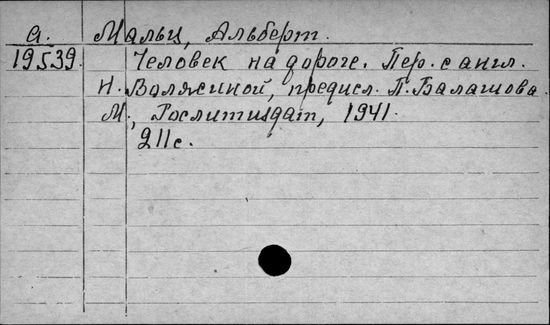 а. Мальц, Альберт.
19539 Человек на дороге. Пер. с англ.
Н. Волжиной, предисл. П. Балашова.
М., Гослитиздат, 1941.
211 с.